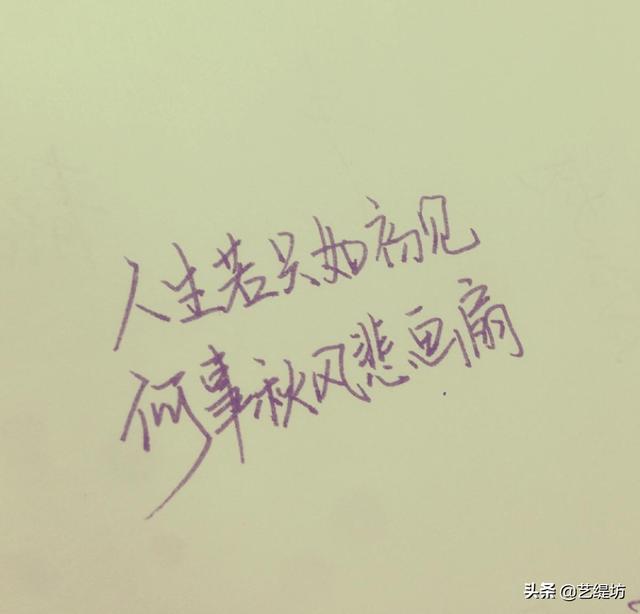 人生若只如初见
何事秋风悲画扇
头条 @艺缇坊